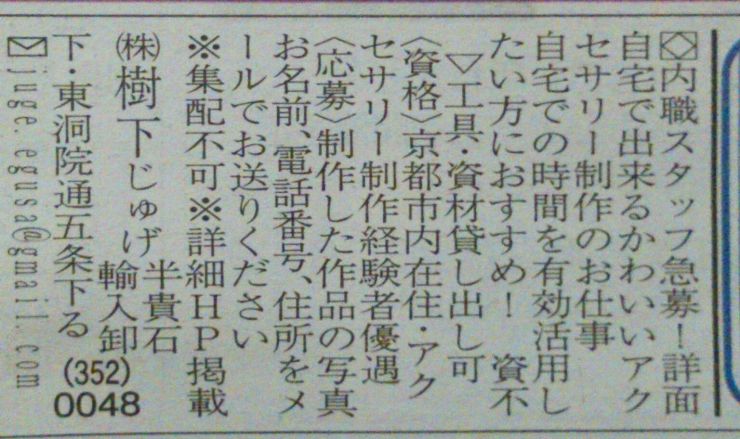 ◇内職スタッフ急募!詳面
自宅で出来るかわいいアク
セサリー制作のお仕事
自宅での時間を有効活用し
たい方におすすめ! 資不
▽工具・資材貸し出し可
〈資格〉京都市内在住・アク
セサリー制作経験者優遇
〈応募〉制作した作品の写真
お名前、電話番号、住所をメ
ールでお送りください
※集配不可※詳細HP掲載
㈱樹下じゅげ 半貴石
輸入卸
下・東洞院通五条下る
(352)
0048
✉juge.egusa@gmail.com